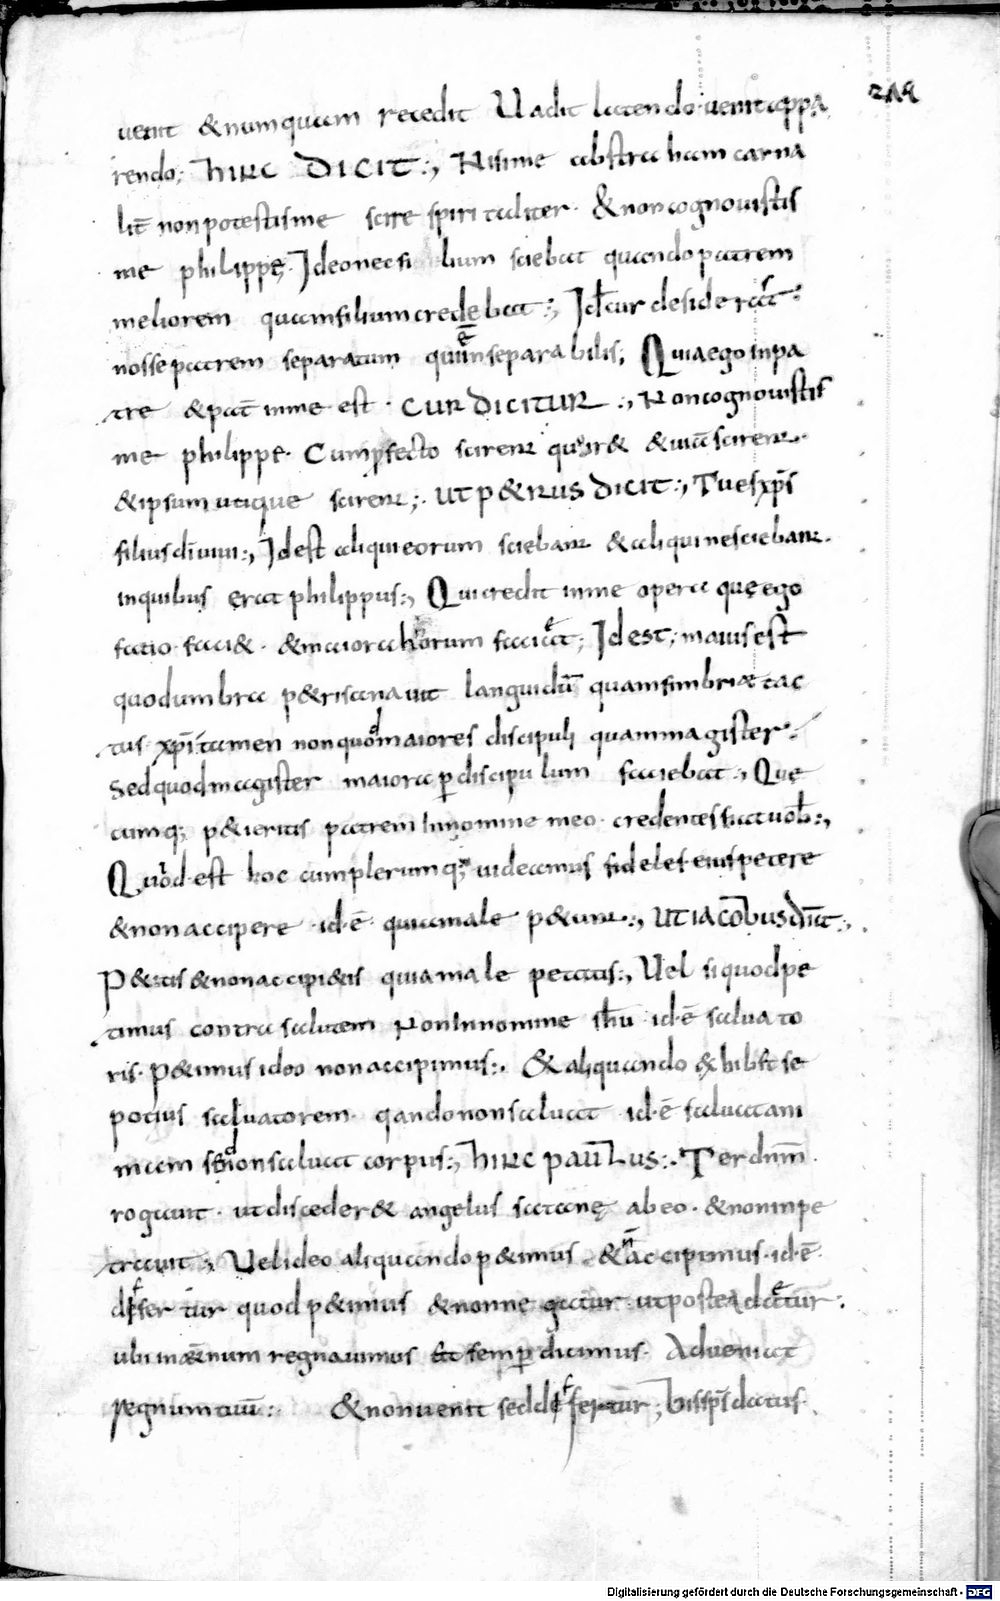 219
uenit &numquam recedit Uadit latendo uenit appa
rendo; hINC DICIT:, Nisi me abstraham carna
lit̄ non potestis me scire spiritaliter. &non cognouistis
me philippę. Ideo nec filium sciebat quando patrem
meliorem quam filium credebat:, Id ÷ cur desiderat:
nosse patrem separatum qui ē inseparabilis; Quia ego in pa
tre & pat̄ in me est. CUR DICITUR:, Non cognouistis
me philippe. Cum pfecto scirent quod̛ & & uitā scirent.
& ipsum utique scirent;. UT P&RUS DICIT:, Tu es xp̄s
filius dī uiui:, Id est aliqui eorum sciebant & aliqui nesciebant.
in quibus erat philippus:, Qui credit in me opera quę ego
facio faci&. & maiora horum faciet; Id est, maius est
quod umbra p&ri sanauit languidū quam fimbriæ tac
tus xp̄i tamen non quod maiores discipuli quam magister.
Sed quod magister maiora p discipulum faciebat:, Quę
cumq; p&ieritis patrem in nomine meo. credentes fiat uob̄:,
Quid est hoc cum plerumq; uidemus fideles eius petere
& non accipere id ē quia male p&unt:, UT IACOBUS dic̄:,
P&itis & non accip&is quia male petitis:, Uel si quod pe
timus contra salutem Non in nomine ih̄u id ē saluato
ris. p&imus ideo non accipimus:. & aliquando exhib& se
potius saluatorem. qando non saluat id ē saluat ani
mam sed non saluat corpus:, hINC PAULUS:. Ter dn̄m
rogauit. ut disceder& angelus satanę ab eo. & non inpe
trauit:, Uel ideo aliquando p&imus & n̄ accipimus. id ē
differtur quod p&imus & non negatur ut postea detur:.
ubi in æternum regnauimus & semp dicimus. Adueniat
regnum tuū:. & non uenit sed differtur; bis sps̄ datus.
Digitalisierung gefördert durch die Deutsche Forschungsgemeinschaft - DFG